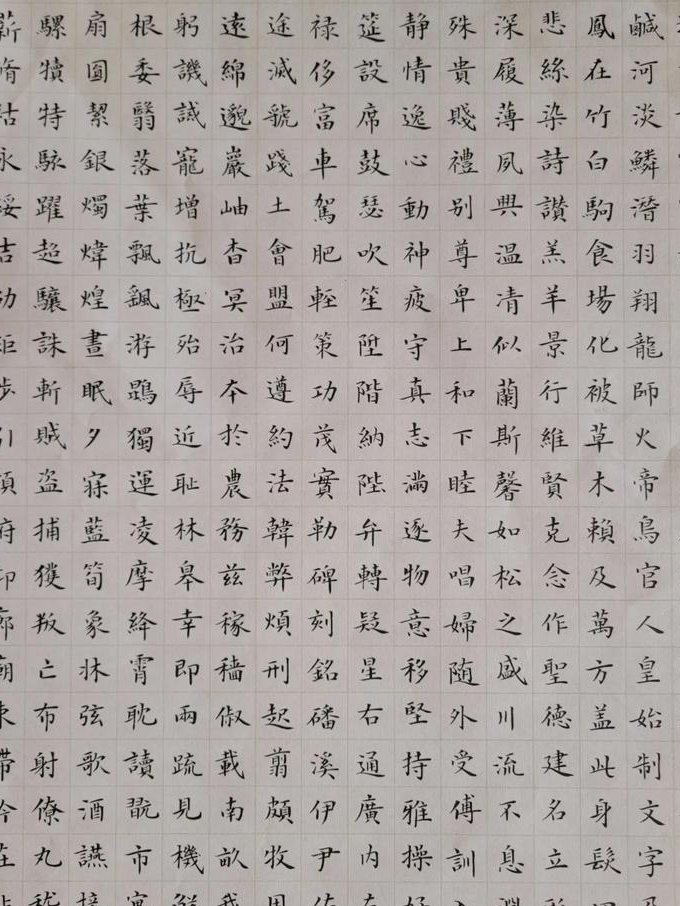 鹹河淡鱗潛羽翔龍師火帝鳥官人皇始制文字乃
鳳在竹白駒食場化被草木賴及萬方蓋此身髮四
悲絲染詩讚羔羊景行維賢克念作聖德建名立形
深履薄夙興温凊似蘭斯馨如松之盛川流不息淵
殊貴賤禮别尊卑上和下睦夫唱婦随外受傅訓入
静情逸心動神疲守真志滿逐物意移堅持雅操好
筵設席鼓瑟吹笙陞階納陛弁轉疑星右通廣内左
禄侈富車駕肥輕策功茂實勒碑刻銘磻溪伊尹佐
途滅虢踐土會盟何遵約法韓弊煩刑起翦頗牧用
遠綿邈巖岫杳冥治夲於農務兹稼穡俶載南畝我
躬譏誡寵增抗極殆辱近耻林皋幸即兩疏見機解
根委翳落葉飄颻游鵾獨運凌摩絳霄耽讀翫市寓
扇圎絜銀燭煒煌晝眠夕寐藍筍象牀弦歌酒讌接
騾犢特駭躍超驤誅斬賊盗捕獲叛亡布射僚丸嵇
薪脩祜永綏吉劭矩步引領俯仰廊廟束帶矜莊徘